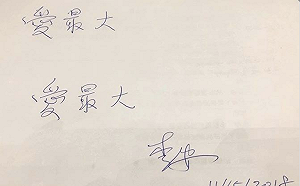 愛最大
愛最大
11/15/2018